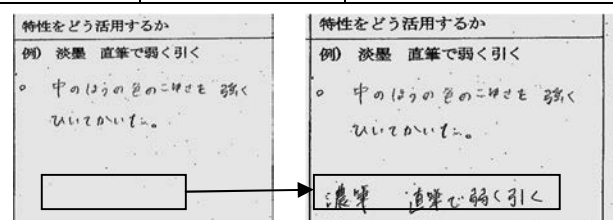 特性をどう活用するか
例) 淡墨 直筆で弱く引く
。 中のほうの色のこゆさを 強く
ひいてかいた。
特性をどう活用するか
例) 淡墨 直筆で弱く引く
。 中のほうの色のこゆさを 強く
ひいてかいた。
濃筆 直筆で弱く引く